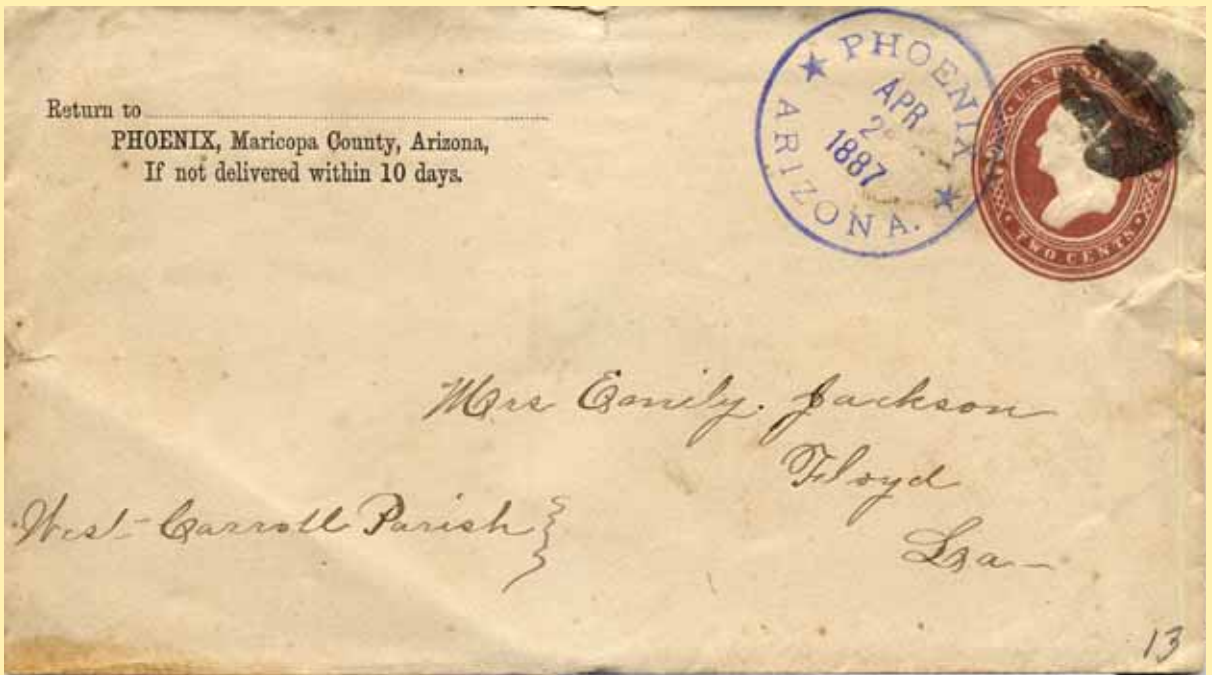 Return to
PHOENIX, Maricopa County, Arizona,
If not delivered within 10 days.
PHOENIX
APR
2
1887
ARIZONA.
U.S.
TWO CENTS
Mrs Emily. Jackson
Floyd
West Carroll Parish
La
13